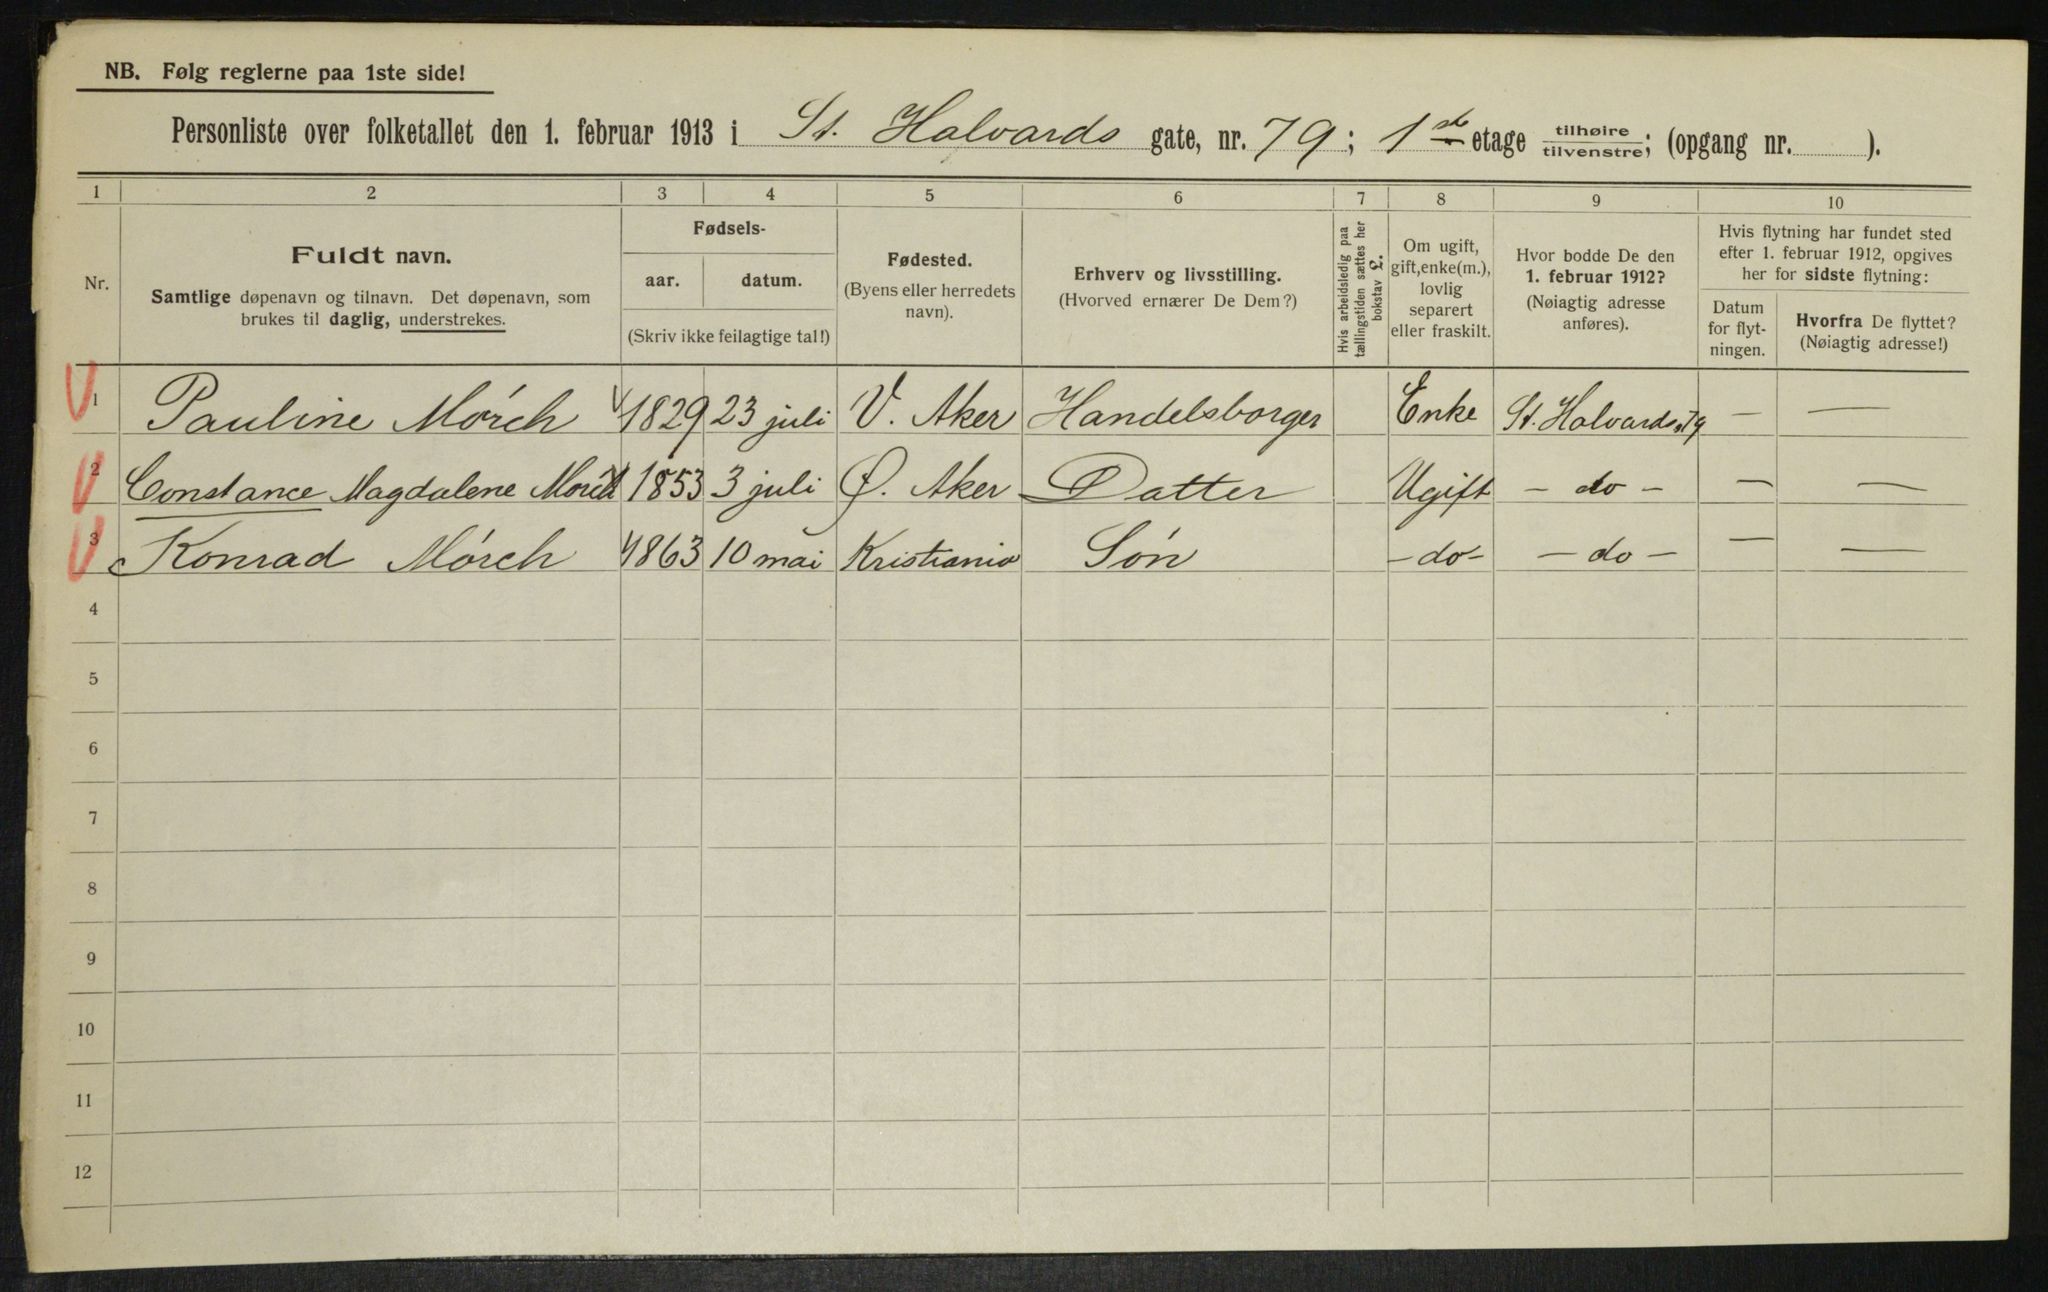 NB. Følg reglerne paa 1ste side!
Personliste over folketallet den 1. februar 1913 i St. Halvards gate, nr. 79; 1ste etage tilhøire/tilvenstre; (opgang nr. ).
1 2 3 4 5 6 7 8 9 10
Nr.
Fuldt navn.
Samtlige døpenavn og tilnavn. Det døpenavn, som
brukes til daglig, understrekes.
Fødsels-
aar. datum.
(Skriv ikke feilagtige tal!)
Fødested.
(Byens eller herredets
navn).
Erhverv og livsstilling.
(Hvorved ernærer De Dem?)
Hvis arbeidsledig paa
tællingstiden sættes her
bokstav L.
Om ugift,
gift, enke(m.),
lovlig
separert
eller fraskilt.
Hvor bodde De den
1. februar 1912?
(Nøiagtig adresse
anføres).
Hvis flytning har fundet sted
efter 1. februar 1912, opgives
her for sidste flytning:
Datum
for flyt-
ningen.
Hvorfra De flyttet?
(Nøiagtig adresse!)
1 Pauline Mórch 1829 23 juli V. Aker Handelsborger Enke St. Halvardsg. 79 — —
2 Constance Magdalene Mórch 1853 3 juli Ø. Aker Datter Ugift - do - — —
3 Konrad Mórch 1863 10 mai Kristiania Són - do - - do - — —
4
5
6
7
8
9
10
11
12